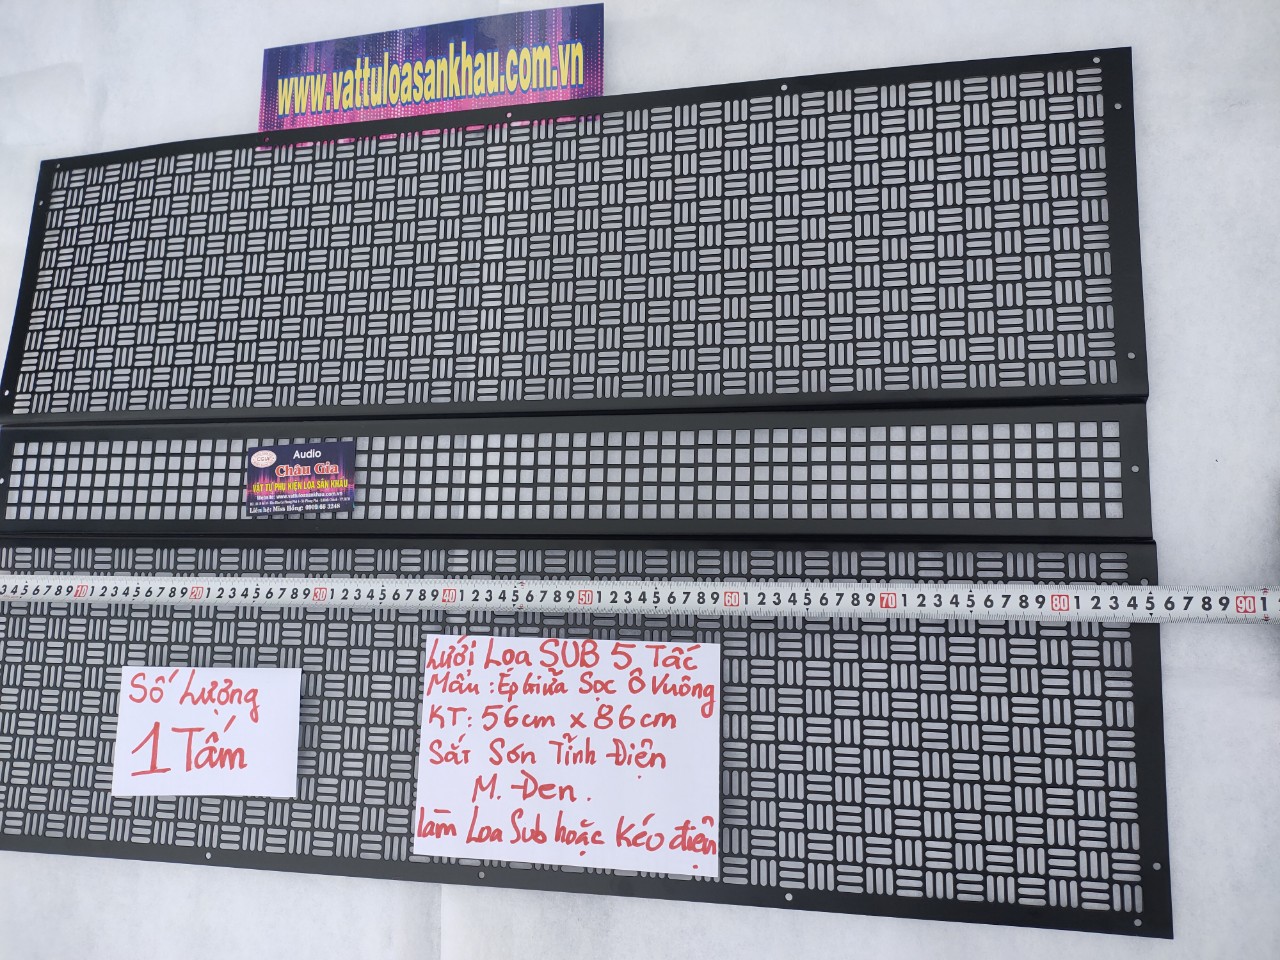 www.vattuloasankhau.com.vn
Audio
Châu Gia
VẬT TƯ PHỤ KIỆN LOA SÂN KHẤU
Website: www.vattuloasankhau.com.vn
3 4 5 6 7 8 9 10 1 2 3 4 5 6 7 8 9 20 1 2 3 4 5 6 7 8 9 30 1 2 3 4 5 6 7 8 9 40 1 2 3 4 5 6 7 8 9 50 1 2 3 4 5 6 7 8 9 60 1 2 3 4 5 6 7 8 9 70 1 2 3 4 5 6 7 8 9 80 1 2 3 4 5 6 7 8 9 90 1
Số Lượng
1 Tấm
Lưới Loa SUB 5 Tấc
Mẫu : Ép Giữa Sọc Ô Vuông
KT: 56cm x 86cm
Sắt Sơn Tĩnh Điện
M. Đen .
Làm Loa Sub hoặc Kéo điện